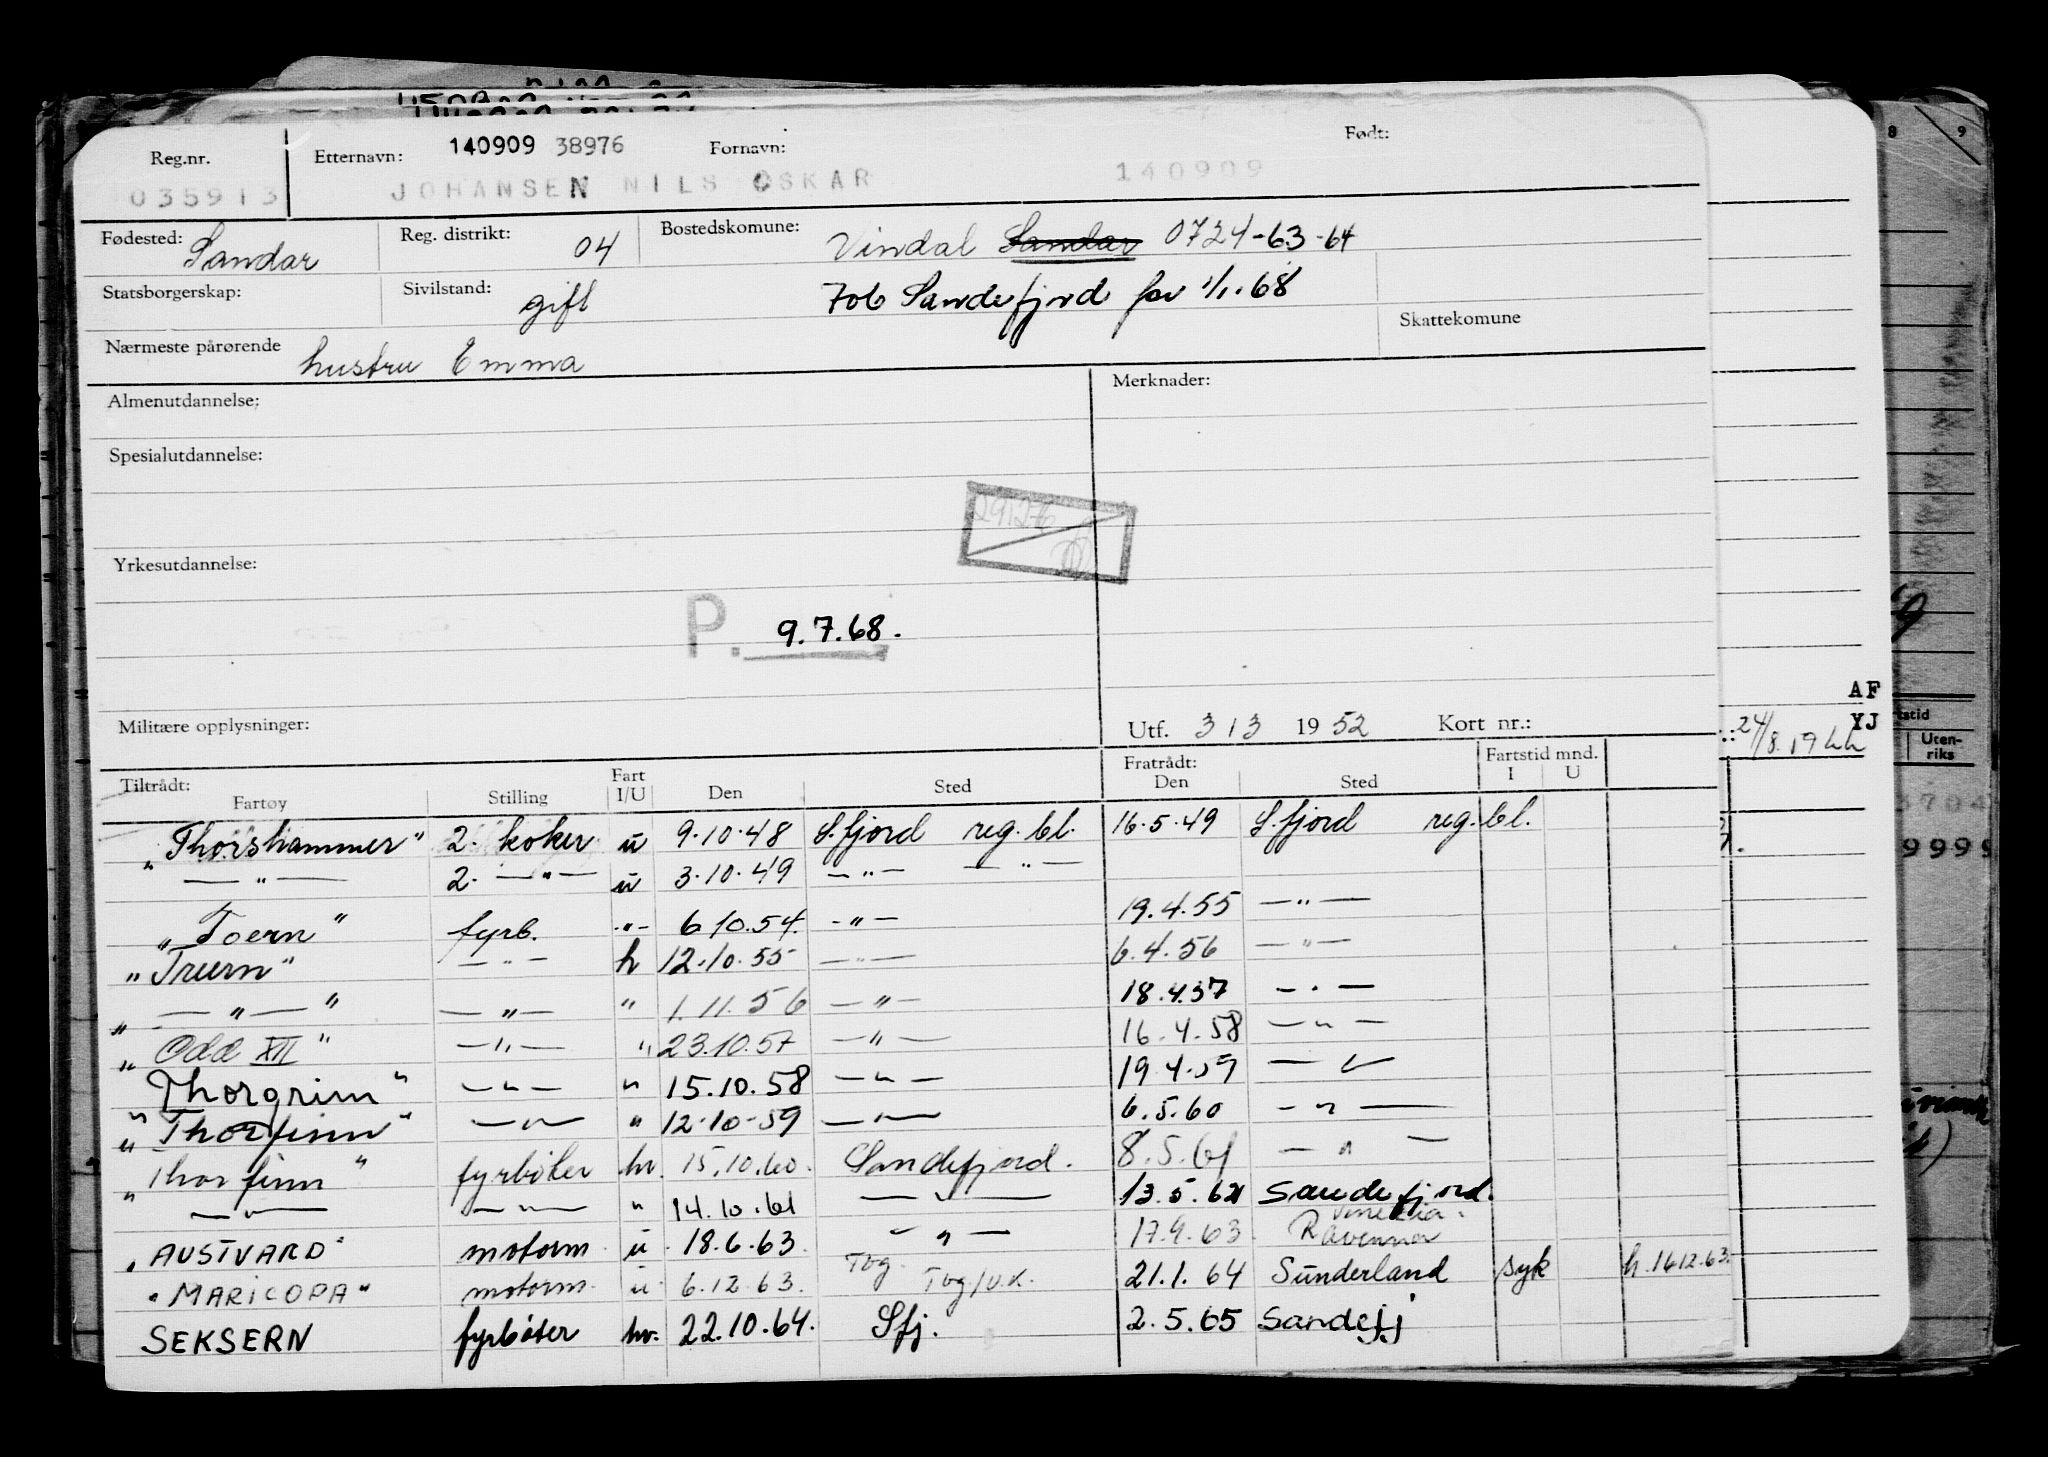 Reg.nr. Etternavn: 140909 38976 Fornavn: Født:
035913 JOHANSEN NILS OSKAR 140909
Fødested: Sandar Reg. distrikt: 04 Bostedskomune: Vindal Sandar 0724-63-64
Statsborgerskap: Sivilstand: gift 706 Sandefjord for 1/1.68
Skattekomune
Nærmeste pårørende hustru Emma
Almenutdannelse: Merknader:
Spesialutdannelse:
29/276
Yrkesutdannelse:
P. 9.7.68.
Militære opplysninger: Utf. 3/3 1952 Kort nr.:
Tiltrådt: Fratrådt: Fartstid mnd.
Fartøy Stilling Fart I/U Den Sted Den Sted I U
"Thorshammer" 2. koker u 9.10.48 S.fjord reg. bl. 16.5.49 S.fjord reg. bl.
— " — 2. — " — u 3.10.49 — " — — " —
"Toern" fyrb. - " - 6.10.54. - " - 19.4.55 — " —
"Truern" — " — h 12.10.55 — " — 6.4.56 — " —
" — " — " — " — " 1.11.56 — " — 18.4.57 — " —
"Odd XII" — " — " 23.10.57 — " — 16.4.58 — " —
"Thorgrim" — " — " 15.10.58 — " — 19.4.59 — " —
"Thorfinn" — " — " 12.10.59 — " — 6.5.60 — " —
"Thorfinn" fyrbøter hv. 15.10.60. Sandefjord. 8.5.61 — " —
— " — — " — " 14.10.61 — " — 13.5.62 Sandefjord.
"AUSTVARD" motorm. u. 18.6.63. — " — 17.9.63. Venezia. Ravenna
"MARICOPA" motorm. u. 6.12.63. Tbg. Tbg/U.K. 21.1.64 Sunderland syk h. 16.12.63.
SEKSERN fyrbøter hv. 22.10.64. Sfj. 2.5.65 Sandefj
8 9
AF
YJ
24/8.19
Uten-
riks
9999